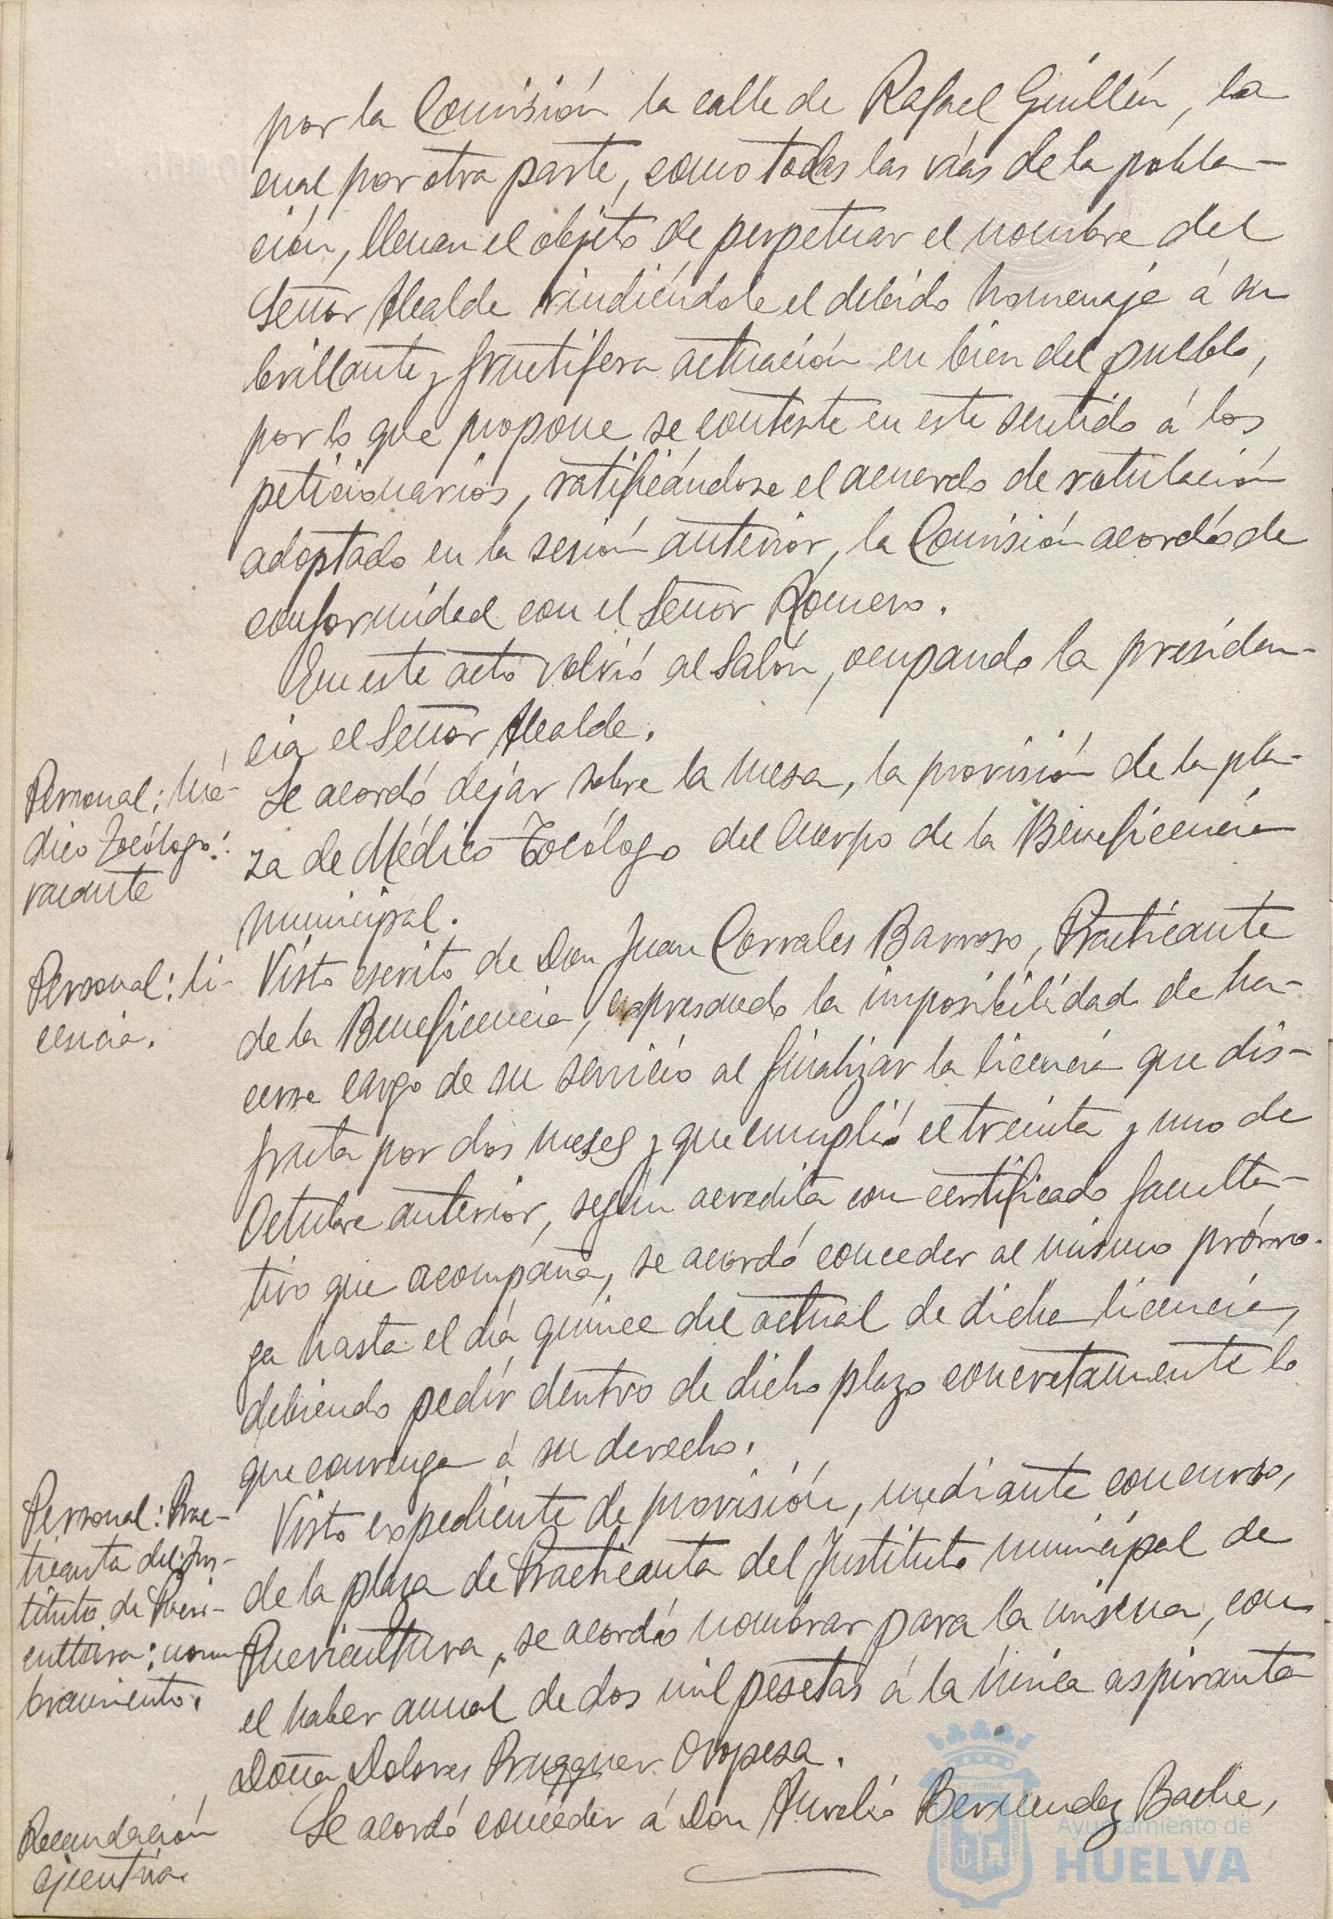 por la Comisión la calle de Rafael Guillén, la
cual por otra parte, como todas las vías de la pobla-
ción, llenan el objeto de perpetuar el nombre del
Señor Alcalde rindiéndole el debido homenaje á su
brillante y fructífera actuación en bien del pueblo,
por lo que propone se conteste en este sentido á los
peticionarios, ratificándose el acuerdo de rotulación
adoptado en la sesión anterior, la Comisión acordó de
conformidad con el Señor Romero.
En este acto volvió al Salón, ocupando la presiden-
cia el Señor Alcalde.
Personal: Mé-
dico Tocólogo:
vacante
Se acordó dejar sobre la mesa, la provisión de la pla-
za de Médico Tocólogo del Cuerpo de la Beneficencia
municipal.
Personal: li-
cencia.
Visto escrito de Don Juan Corrales Barroso, Practicante
de la Beneficencia, expresando la imposibilidad de ha-
cerse cargo de su servicio al finalizar la licencia que dis-
fruta por dos meses y que cumplió el treinta y uno de
Octubre anterior, según acredita con certificado faculta-
tivo que acompaña, se acordó conceder al mismo prórro-
ga hasta el día quince del actual de dicha licencia,
debiendo pedir dentro de dicho plazo concretamente lo
que convenga á su derecho.
Personal: Prac-
ticanta del Ins-
tituto de Pueri-
cultura: nom-
bramiento.
Visto expediente de provisión, mediante concurso,
de la plaza de Practicanta del Instituto municipal de
Puericultura, se acordó nombrar para la misma, con
el haber anual de dos mil pesetas á la única aspiranta
Doña Dolores Brugguer Oropesa.
Recaudación
ejecutiva.
Se acordó conceder á Don Aurelio Bermudez Bache,
Ayuntamiento de
HUELVA